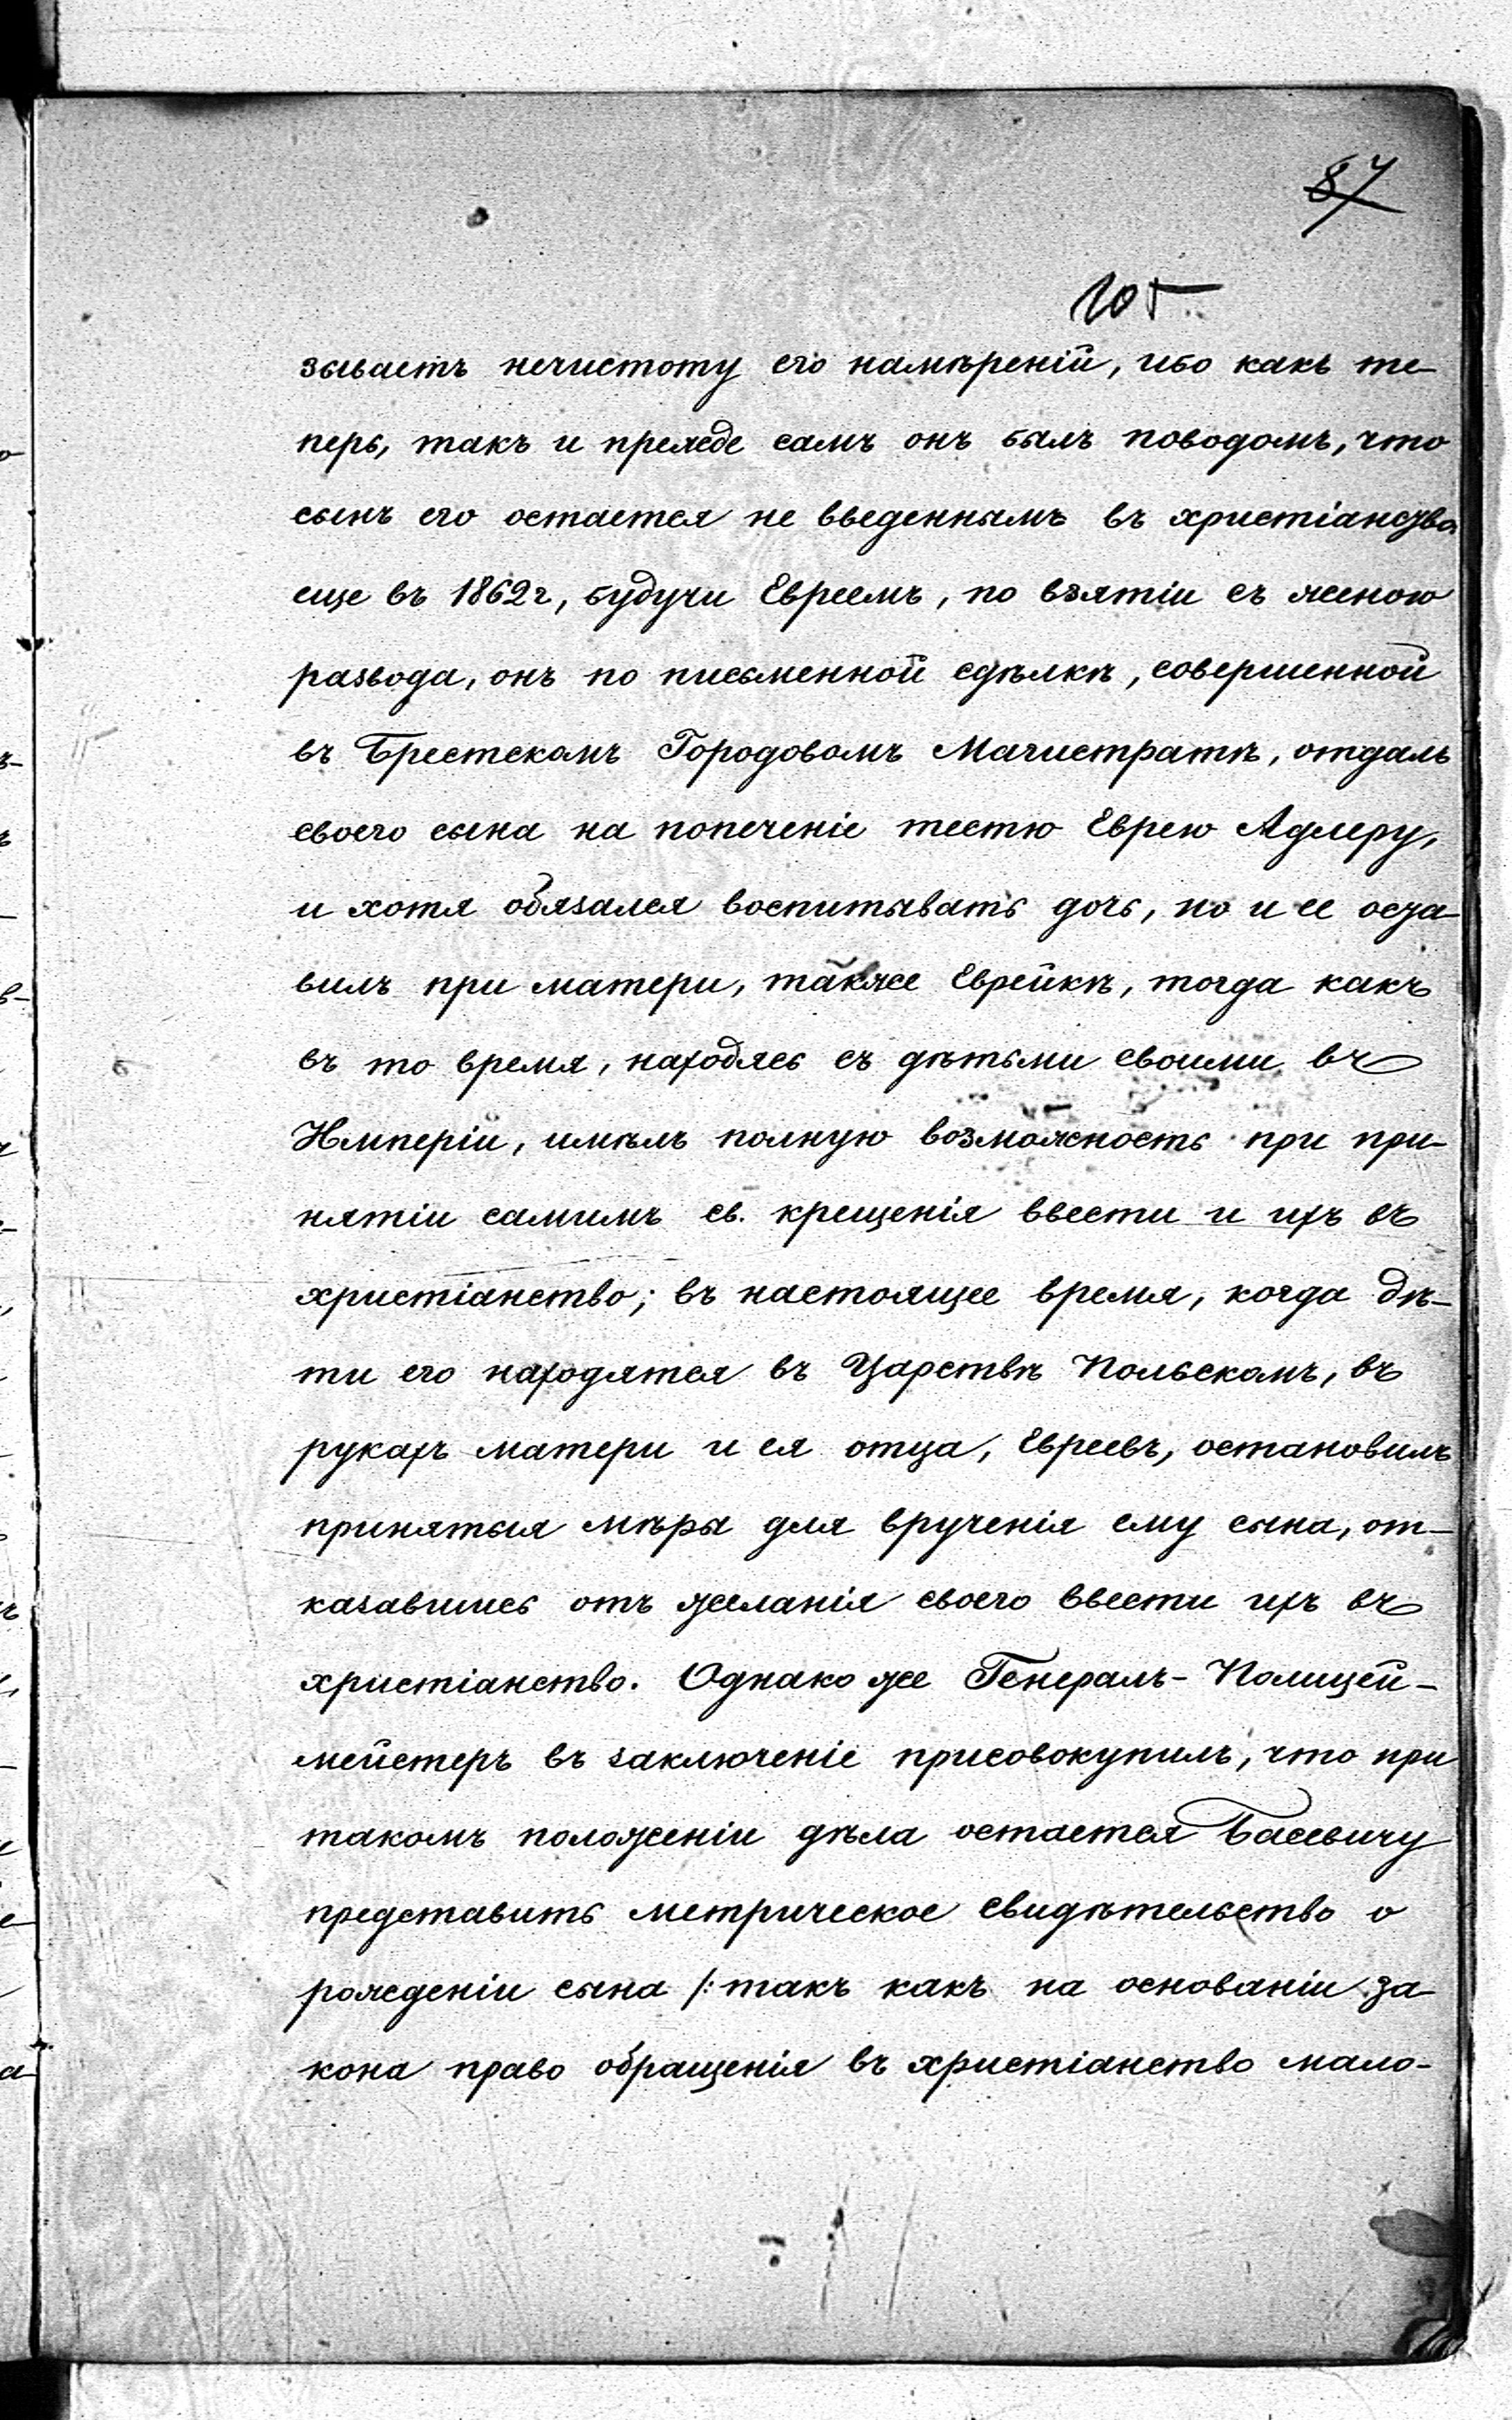 87
105
зываетъ нечистоту его намѣреній, ибо какъ те-
перь, такъ и прежде самъ онъ былъ поводомъ, что
сынъ его остается не введеннымъ въ христіанство
еще въ 1862г, будучи Евреемъ, по взятіи съ женою
развода, онъ по письменной сдѣлкѣ, совершенной
въ Брестскомъ Городовомъ Магистратѣ, отдалъ
своего сына на попеченіе тестю Еврею Адлеру,
и хотя обязался воспитывать дочь, но и ее оста-
вилъ при матери, также Еврейкѣ, тогда какъ
въ то время, находясь съ дѣтьми своими въ
Имперіи, имѣлъ полную возможность при при-
нятіи самимъ св. крещенія ввести и ихъ въ
христіанство; въ настоящее время, когда дѣ-
ти его находятся въ Царствѣ Польскомъ, въ
рукахъ матери и ея отца, Евреевъ, остановилъ
принятыя мѣры для врученія ему сына, от-
казавшись отъ желанія своего ввести ихъ въ
христіанство. Однако же Генералъ-Полицей-
мейстеръ въ заключеніе присовокупилъ, что при
такомъ положеніи дѣла остается Басевичу
представить метрическое свидѣтельство о
рожденіи сына /: такъ какъ на основаніи за-
кона право обращенія въ христіанство мало-